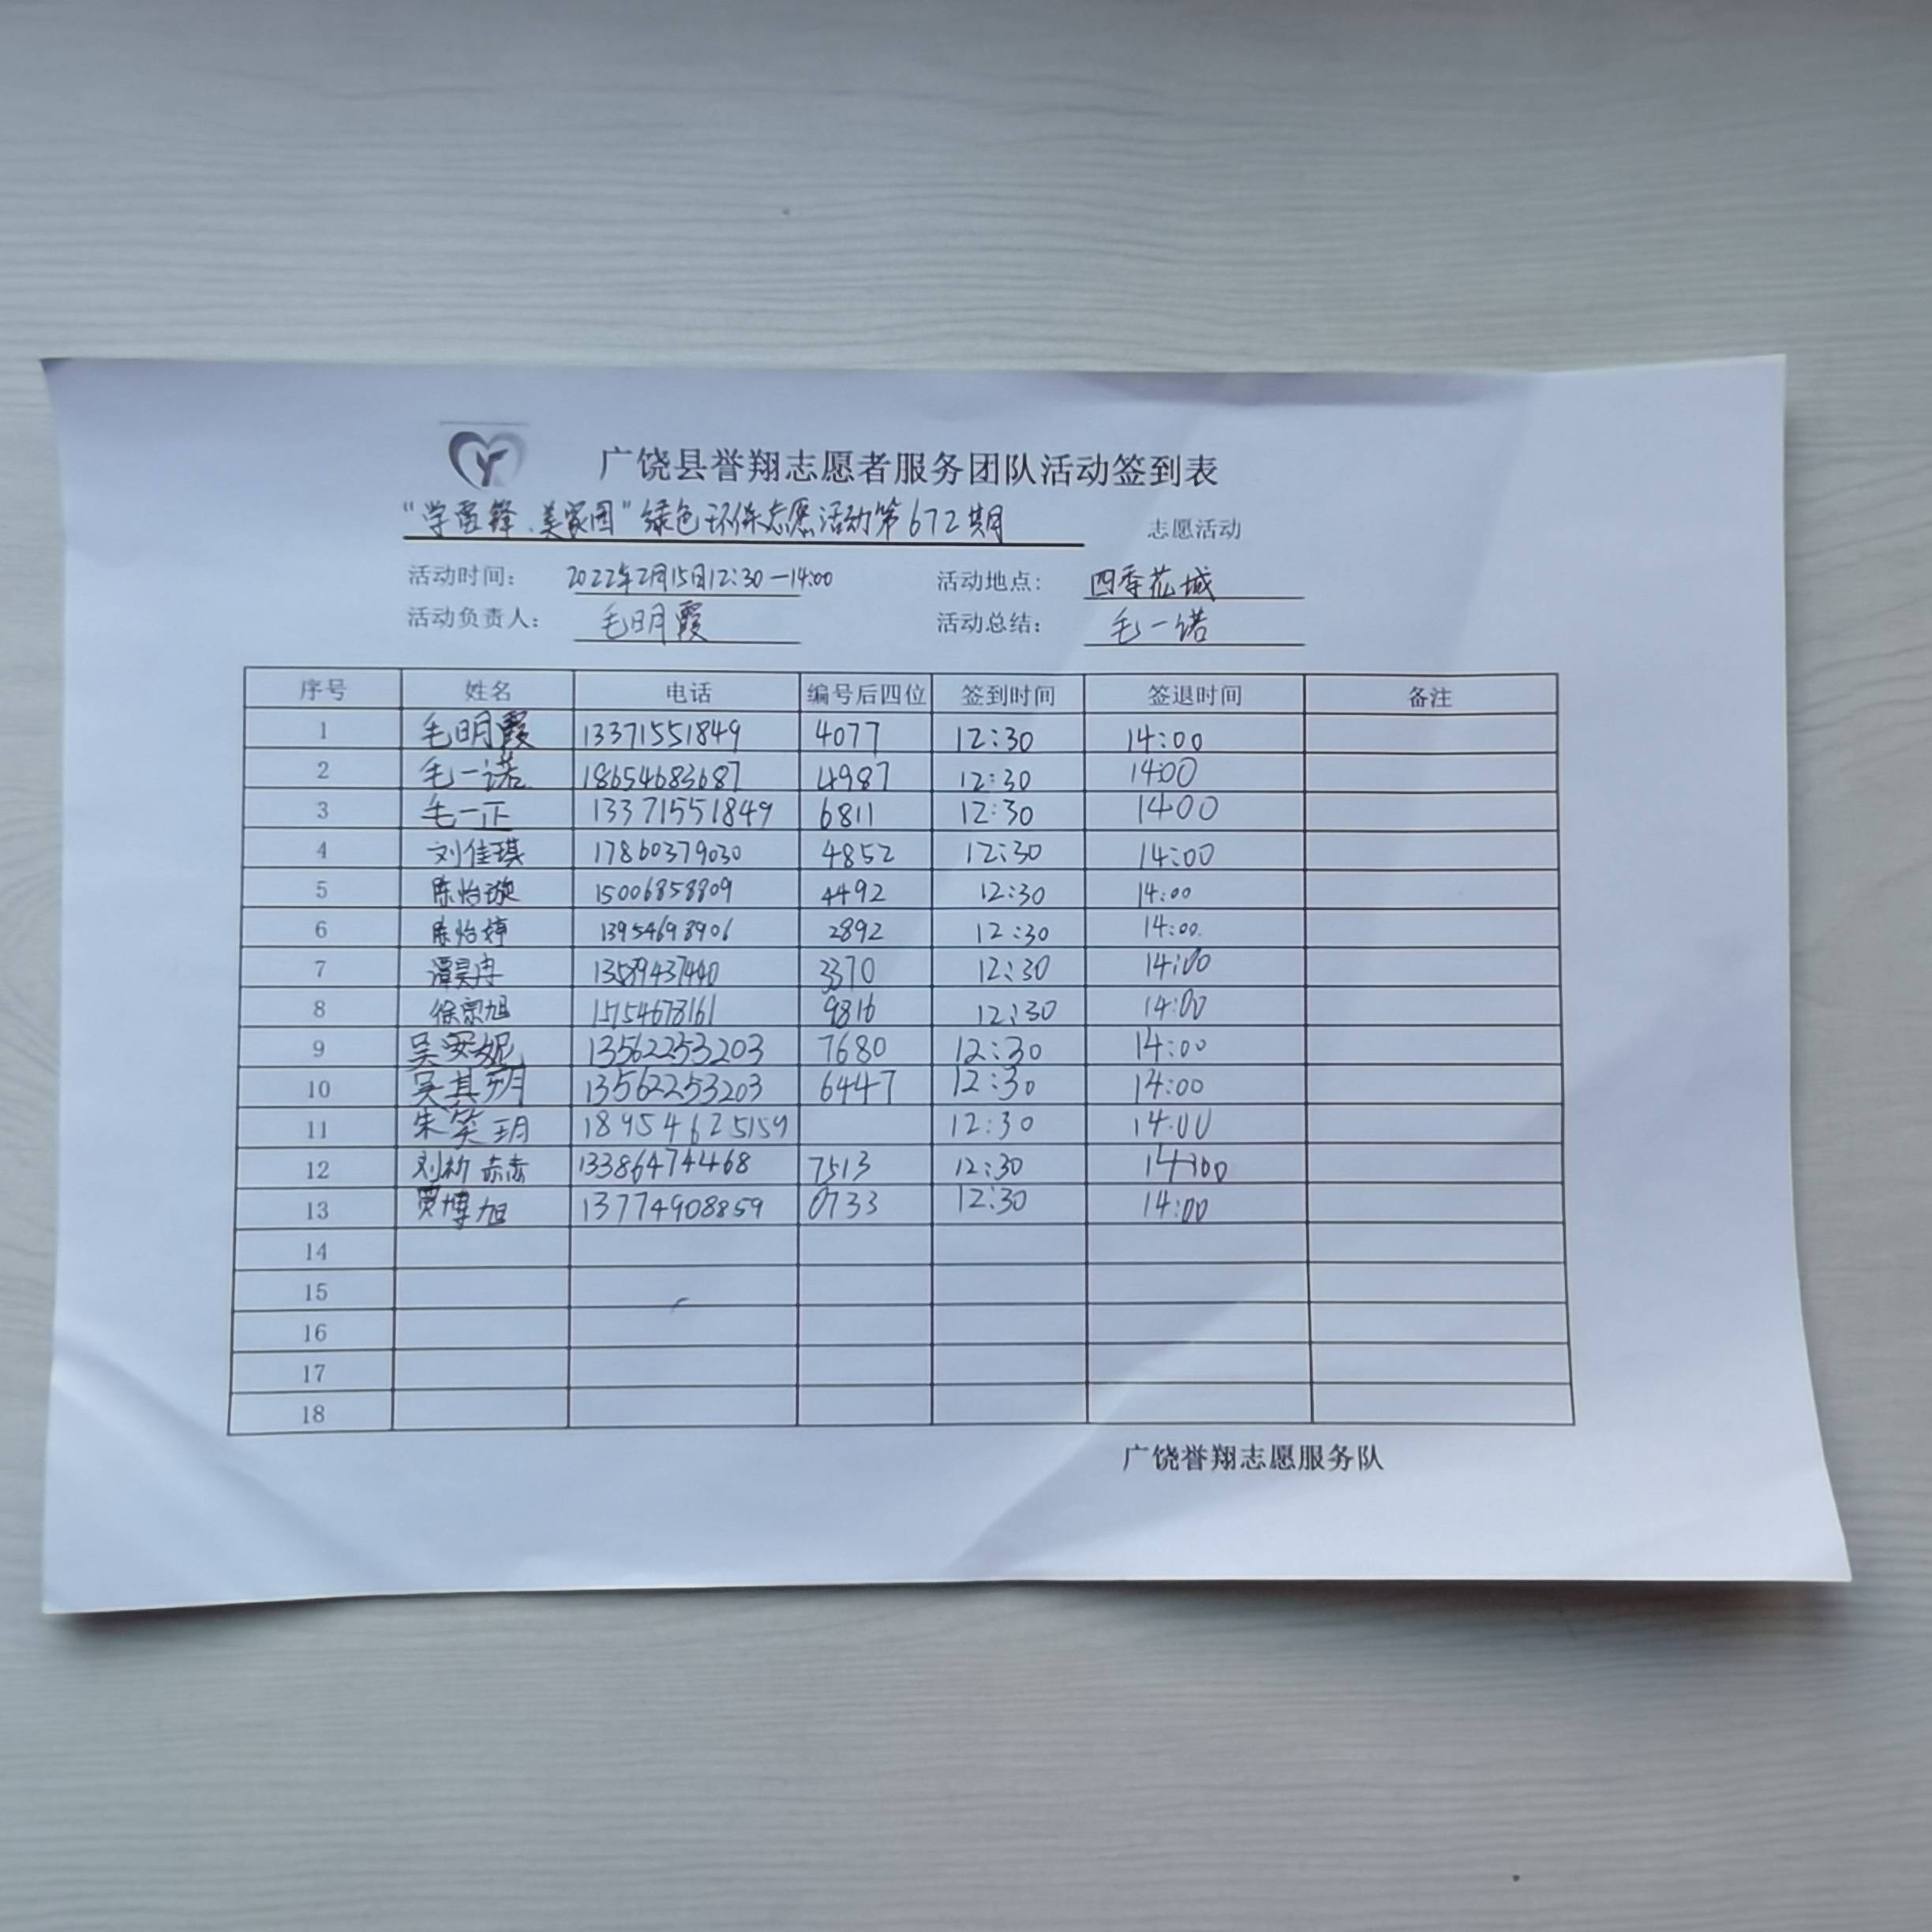 广饶县誉翔志愿者服务团队活动签到表
“学雷锋、美家园”绿色环保志愿活动第672期 志愿活动
活动时间： 2022年2月15日12:30—14:00 活动地点： 四季花城
活动负责人： 毛明霞 活动总结： 毛一诺
序号 姓名 电话 编号后四位 签到时间 签退时间 备注
1 毛明霞 13371551849 4077 12:30 14:00
2 毛一诺 18654683687 4987 12:30 1400
3 毛一正 13371551849 6811 12:30 1400
4 刘佳琪 17860379030 4852 12:30 14:00
5 陈怡璇 15006858809 4492 12:30 14:00
6 陈怡婷 13954698906 2892 12:30 14:00
7 谭昊冉 13589437440 3370 12:30 14:00
8 徐宗旭 15154678161 9816 12:30 14:00
9 吴安妮 13562253203 7680 12:30 14:00
10 吴其朔 13562253203 6447 12:30 14:00
11 朱笑玥 18954625159 12:30 14:00
12 刘析 13386474468 7513 12:30 14:00
13 贾博旭 13774908859 0733 12:30 14:00
14
15
16
17
18
广饶誉翔志愿服务队